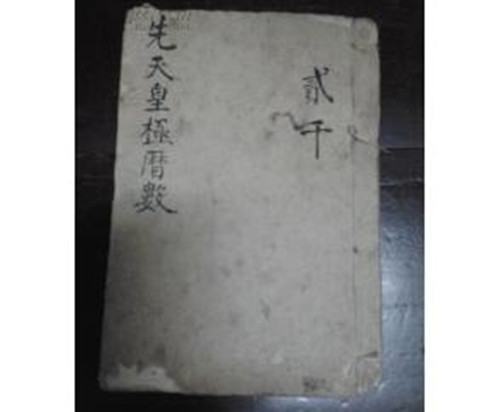 貳千
先天皇極暦數